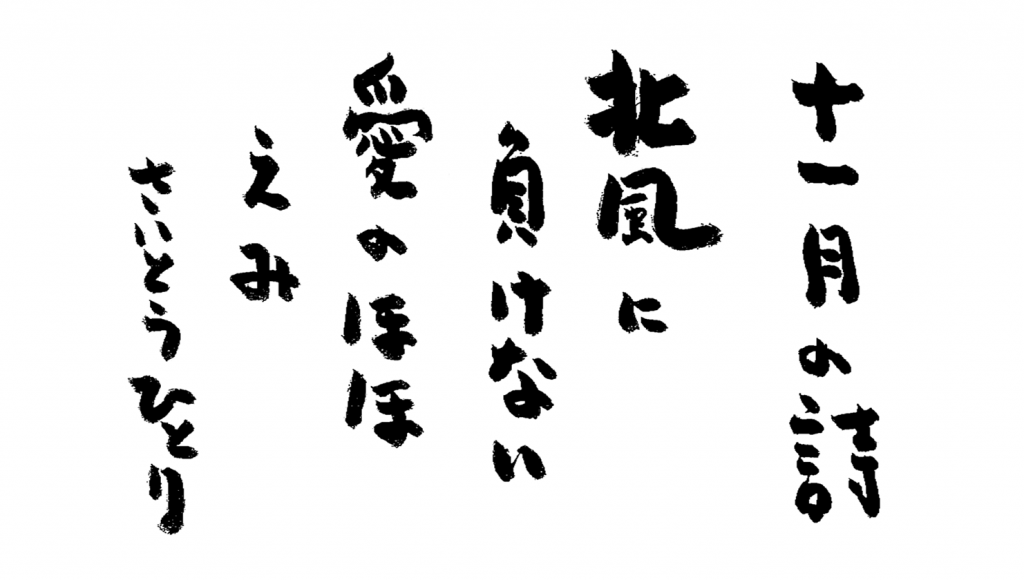 十一月の詩
北風に
負けない
愛のほほ
えみ
さいとうひとり